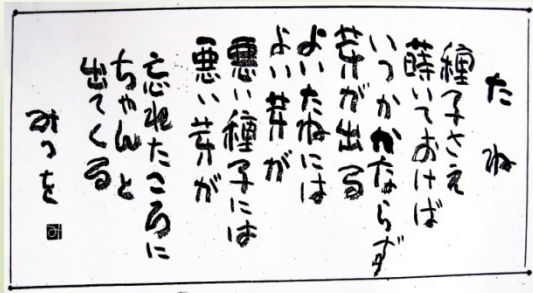 たね
種子さえ
蒔いておけば
いつかかならず
芽が出る
よいたねには
よい芽が
悪い種子には
悪い芽が
忘れたころに
ちゃんと
出てくる
みつを
み